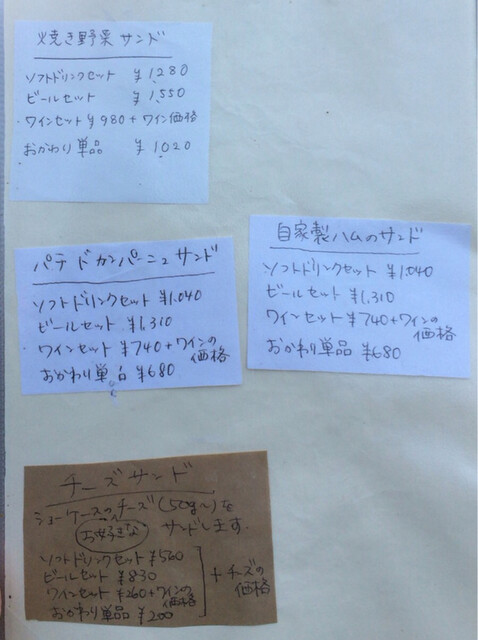 焼き野菜サンド
ソフトドリンクセット ¥1,280
ビールセット ¥1,550
ワインセット ¥980+ワイン価格
おかわり単品 ¥1020
パテドカンパーニュサンド
ソフトドリンクセット ¥1,040
ビールセット ¥1,310
ワインセット ¥740+ワインの価格
おかわり単品 ¥680
自家製ハムのサンド
ソフトドリンクセット ¥1,040
ビールセット ¥1,310
ワインセット ¥740+ワインの価格
おかわり単品 ¥680
チーズサンド
ショーケースのチーズ(50g〜)を
お好きな サンドします。
ソフトドリンクセット ¥560
ビールセット ¥830
ワインセット ¥260+ワインの価格
おかわり単品 ¥200
+チーズの価格